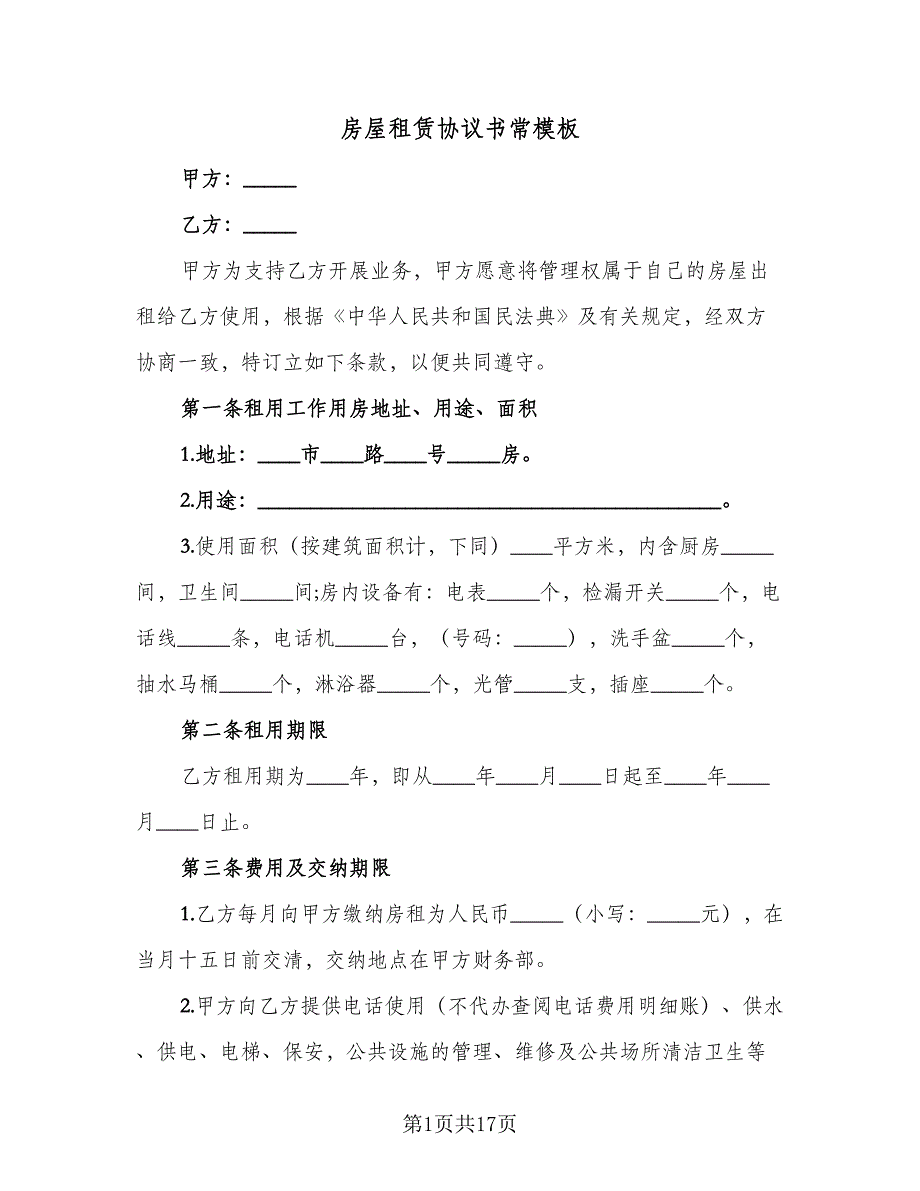 房屋租赁协议书常模板
甲方：_____
乙方：_____
甲方为支持乙方开展业务，甲方愿意将管理权属于自己的房屋出
租给乙方使用，根据《中华人民共和国民法典》及有关规定，经双方
协商一致，特订立如下条款，以便共同遵守。
第一条租用工作用房地址、用途、面积
1.地址：____市____路____号_____房。
2.用途：____________________________________________。
3.使用面积（按建筑面积计，下同）____平方米，内含厨房_____
间，卫生间_____间;房内设备有：电表_____个，检漏开关_____个，电
话线_____条，电话机_____台，（号码：_____），洗手盆_____个，
抽水马桶_____个，淋浴器_____个，光管_____支，插座_____个。
第二条租用期限
乙方租用期为____年，即从____年____月____日起至____年____
月____日止。
第三条费用及交纳期限
1.乙方每月向甲方缴纳房租为人民币_____（小写：_____元），在
当月十五日前交清，交纳地点在甲方财务部。
2.甲方向乙方提供电话使用（不代办查阅电话费用明细账）、供水
、供电、电梯、保安，公共设施的管理、维修及公共场所清洁卫生等
第1页共17页